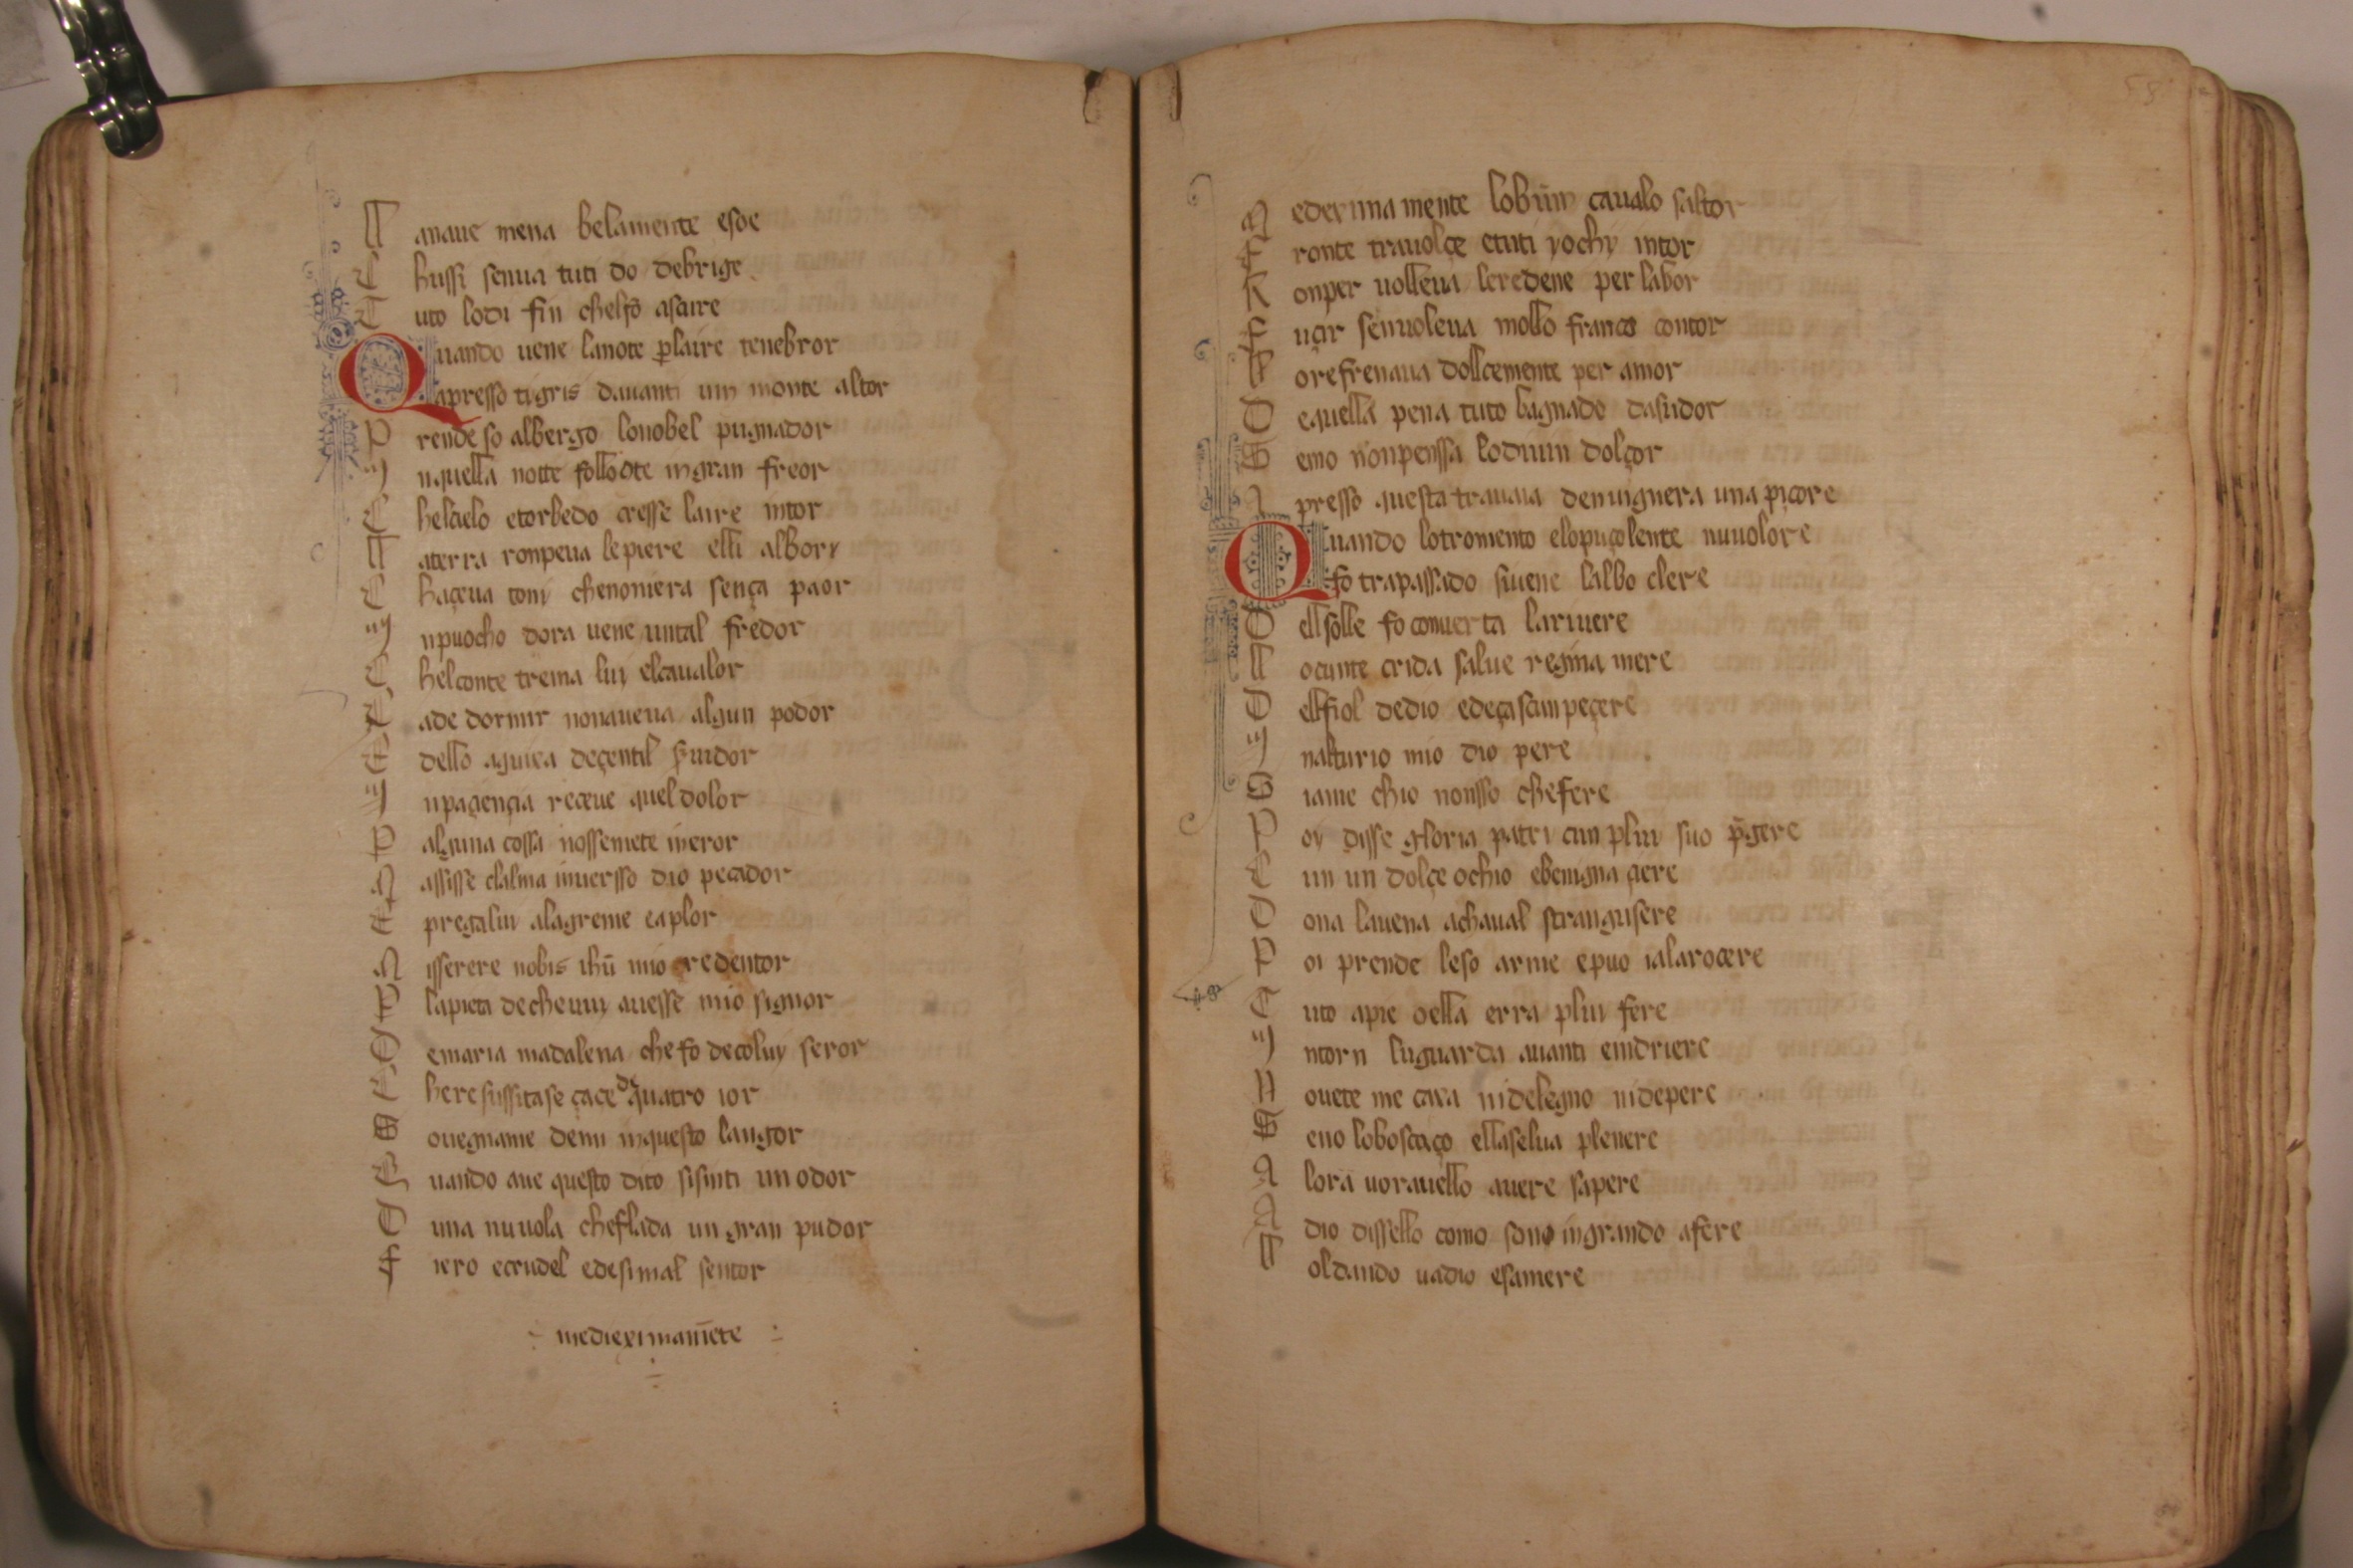 L anaue mena belamente esoe
C hussi senua tuti do debrige
T uto lo di fin chelfo asaire
Quando uene lanote p laire tenebror
apresso tigris dauanti un monte altor
P rende so albergo lonobel pugnador
I nquella notte follo dte in gran freor
C helcielo etorbedo cresse laire intor
L aterra ronpeua le piere elli albory
C haçeua tony chenoniera sença paor
I npuocho dora uene untal fredor
C hel conte trema luy elcaualor
E ade dormir nonaueua algun podor
E dello aguira deçentil seruidor
I npaçençia receue quel dolor
P alguna cossa nossemete in eror
M assisse clalma inuersso dio pecador
E pregalui alagreme eaplor
M isserere nobis ihū mio redentor
P lapieta decheuuy auesse mio signor
D emaria madalena che fo decoluy seror
C here sussitase çace de quatro ior
S ouegname demi inquesto langor
Q uando aue questo dito sisinti un odor
D una nuuola cheflada un gran pudor
F iero ecrudel edesimal sentor
medieximamēte
M edeximamente lobuin caualo saltor
F ronte trauolçe etuti yochy intor
R onper uolleua leredene per labor
F uçir senuoleua mollo franco contor
L orefrenaua dollcemente per amor
D equella pena tuto bagnado dasudor
S emo nonpenssa lodiuin dolçor
A presso questa trauaia demignera una piçore
Quando lotromento elopuçolente nuuolore
fo trapassado siuene lalbo clere
D ell solle fo conuerta lariuere
L oconte crida salue regina mere
D ellfiol dedio edeça scanpeçere
I nalturio mio dio pere
S iame chio nonsso chefere
P oy disse gloria patri cun plui suo p̄gere
C un un dolçe ochio ebenigna çere
D ona lauena achaual strangusere
P oi prende leso arme epuo ialarocere
T uto apie oella erra plui fere
I ntorn luguarda auanti eindriere
N ouete me cara nidelegno nidepere
S eno loboscaço ellaselua plenere
A lora uorauello auere sapere
A dio dissello como sono ingrando afere
L oldando uadio esamere